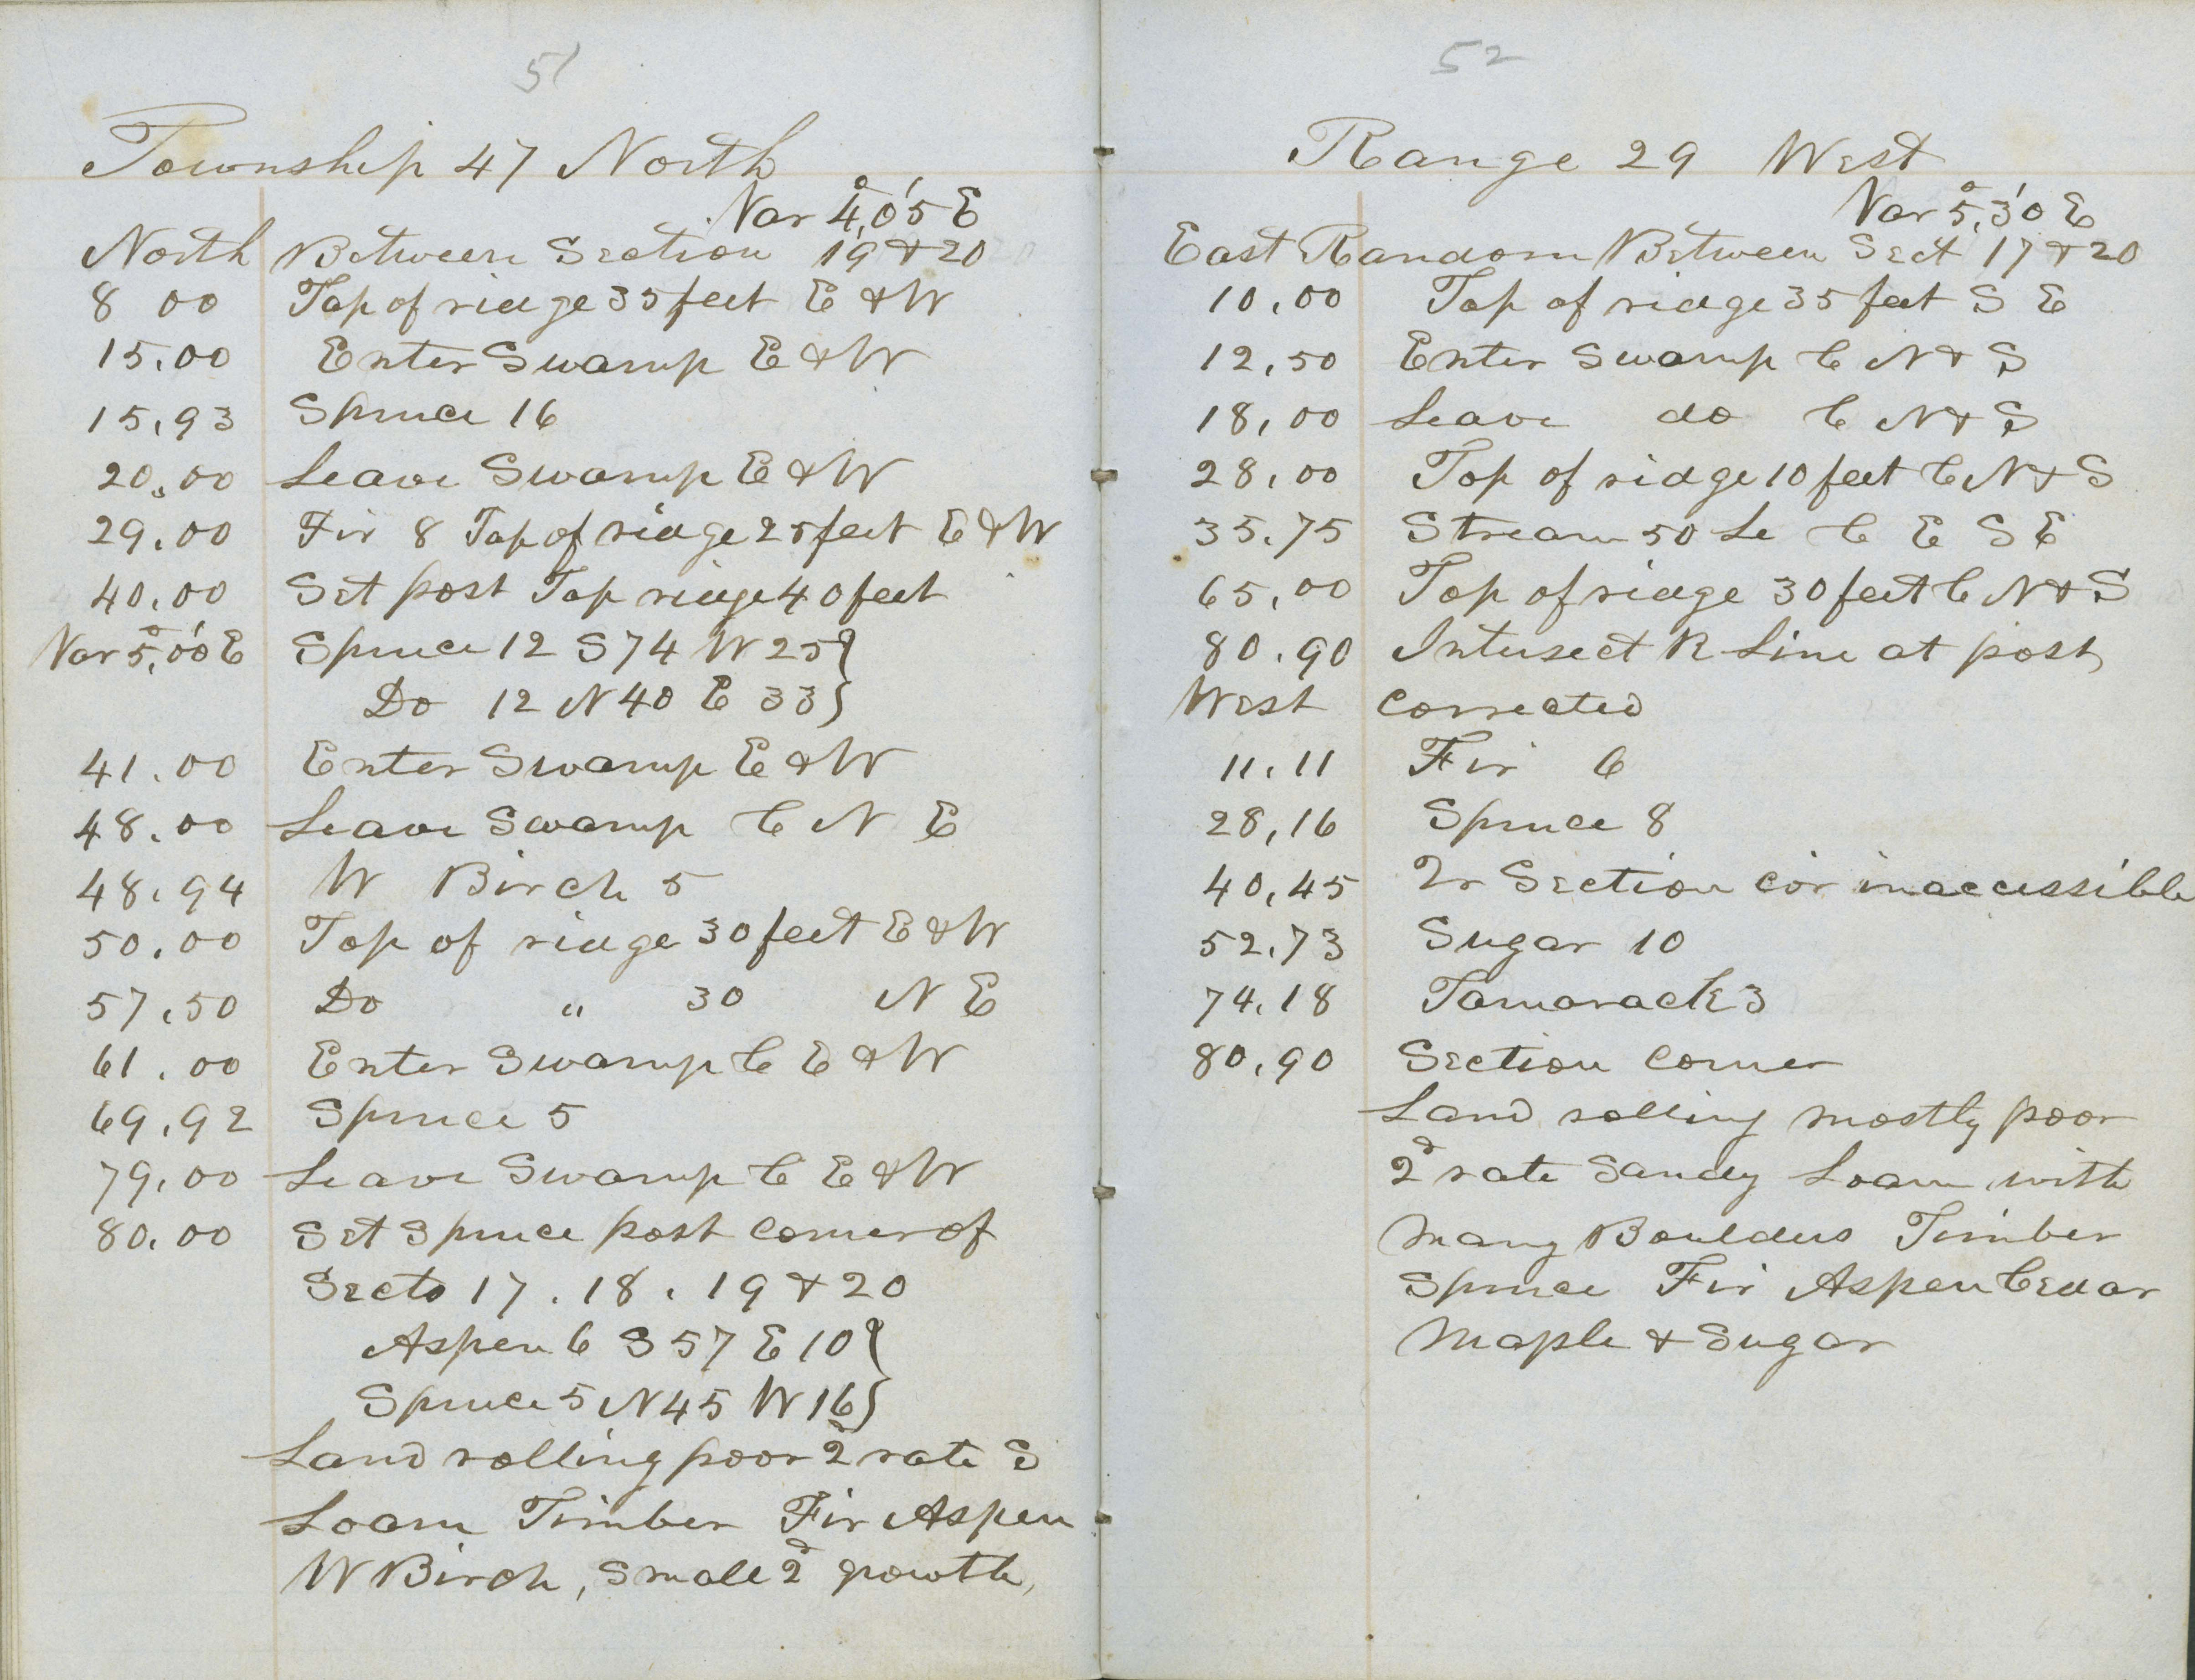 51
Township 47 North
Var 4°,05' E
North Between Section 19 & 20
8 00 Top of ridge 35 feet E & W
15.00 Enter Swamp E & W
15.93 Spruce 16
20.00 Leave Swamp E & W
29.00 Fir 8 Top of ridge 25 feet E & W
40.00 Set post Top ridge 40 feet
Var 5°,00' E Spruce 12 S 74 W 25 }
Do 12 N 40 E 33 }
41.00 Enter Swamp E & W
48.00 Leave Swamp C N E
48.94 W Birch 5
50.00 Top of ridge 30 feet E & W
57.50 Do " 30 N E
61.00 Enter Swamp C E & W
69.92 Spruce 5
79.00 Leave Swamp C E & W
80.00 Set Spruce post Corner of
Sects 17. 18. 19 & 20
Aspen 6 S 57 E 10 }
Spruce 5 N 45 W 16 }
Land rolling poor 2d rate S
Loam Timber Fir Aspen
W Birch, small 2d growth,
52
Range 29 West
Var 5°,30' E
East Random Between Sect 17 & 20
10.00 Top of ridge 35 feet S E
12,50 Enter Swamp C N & S
18,00 Leave do C N & S
28,00 Top of ridge 10 feet C N & S
35.75 Stream 50 Lk C E S E
65,00 Top of ridge 30 feet C N & S
80.90 Intersect R Line at post
West Corrected
11.11 Fir 6
28,16 Spruce 8
40,45 Qr Section cor inaccessible
52.73 Sugar 10
74.18 Tamarack 3
80,90 Section Corner
Land rolling mostly poor
2d rate Sandy Loam with
many Boulders Timber
Spruce Fir Aspen Cedar
Maple & Sugar